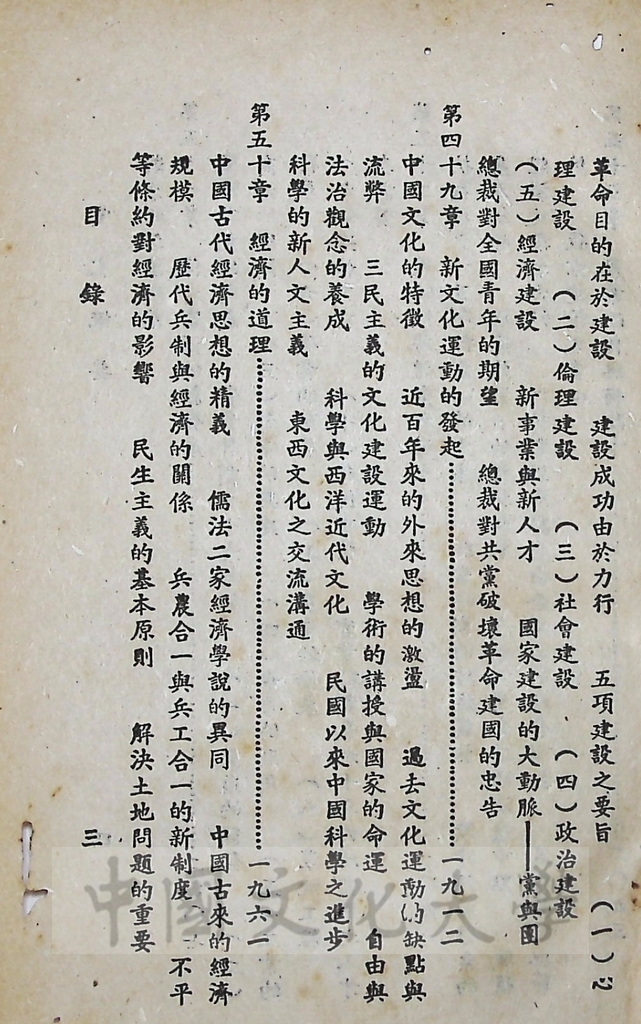 革命目的在於建設　建設成功由於力行　五項建設之要旨　（一）心
理建設　（二）倫理建設　（三）社會建設　（四）政治建設
（五）經濟建設　新事業與新人才　國家建設的大動脈——黨與團
總裁對全國青年的期望　總裁對共黨破壞革命建國的忠告
第四十九章　新文化運動的發起……………………一九一二
中國文化的特徵　近百年來的外來思想的激盪　過去文化運動的缺點與
流弊　三民主義的文化建設運動　學術的講授與國家的命運　自由與
法治觀念的養成　科學與西洋近代文化　民國以來中國科學之進步
科學的新人文主義　東西文化之交流溝通
第五十章　經濟的道理……………………一九六一
中國古代經濟思想的精義　儒法二家經濟學說的異同　中國古來的經濟
規模　歷代兵制與經濟的關係　兵農合一與兵工合一的新制度　不平
等條約對經濟的影響　民生主義的基本原則　解決土地問題的重要
目　錄　三
中國文化大學